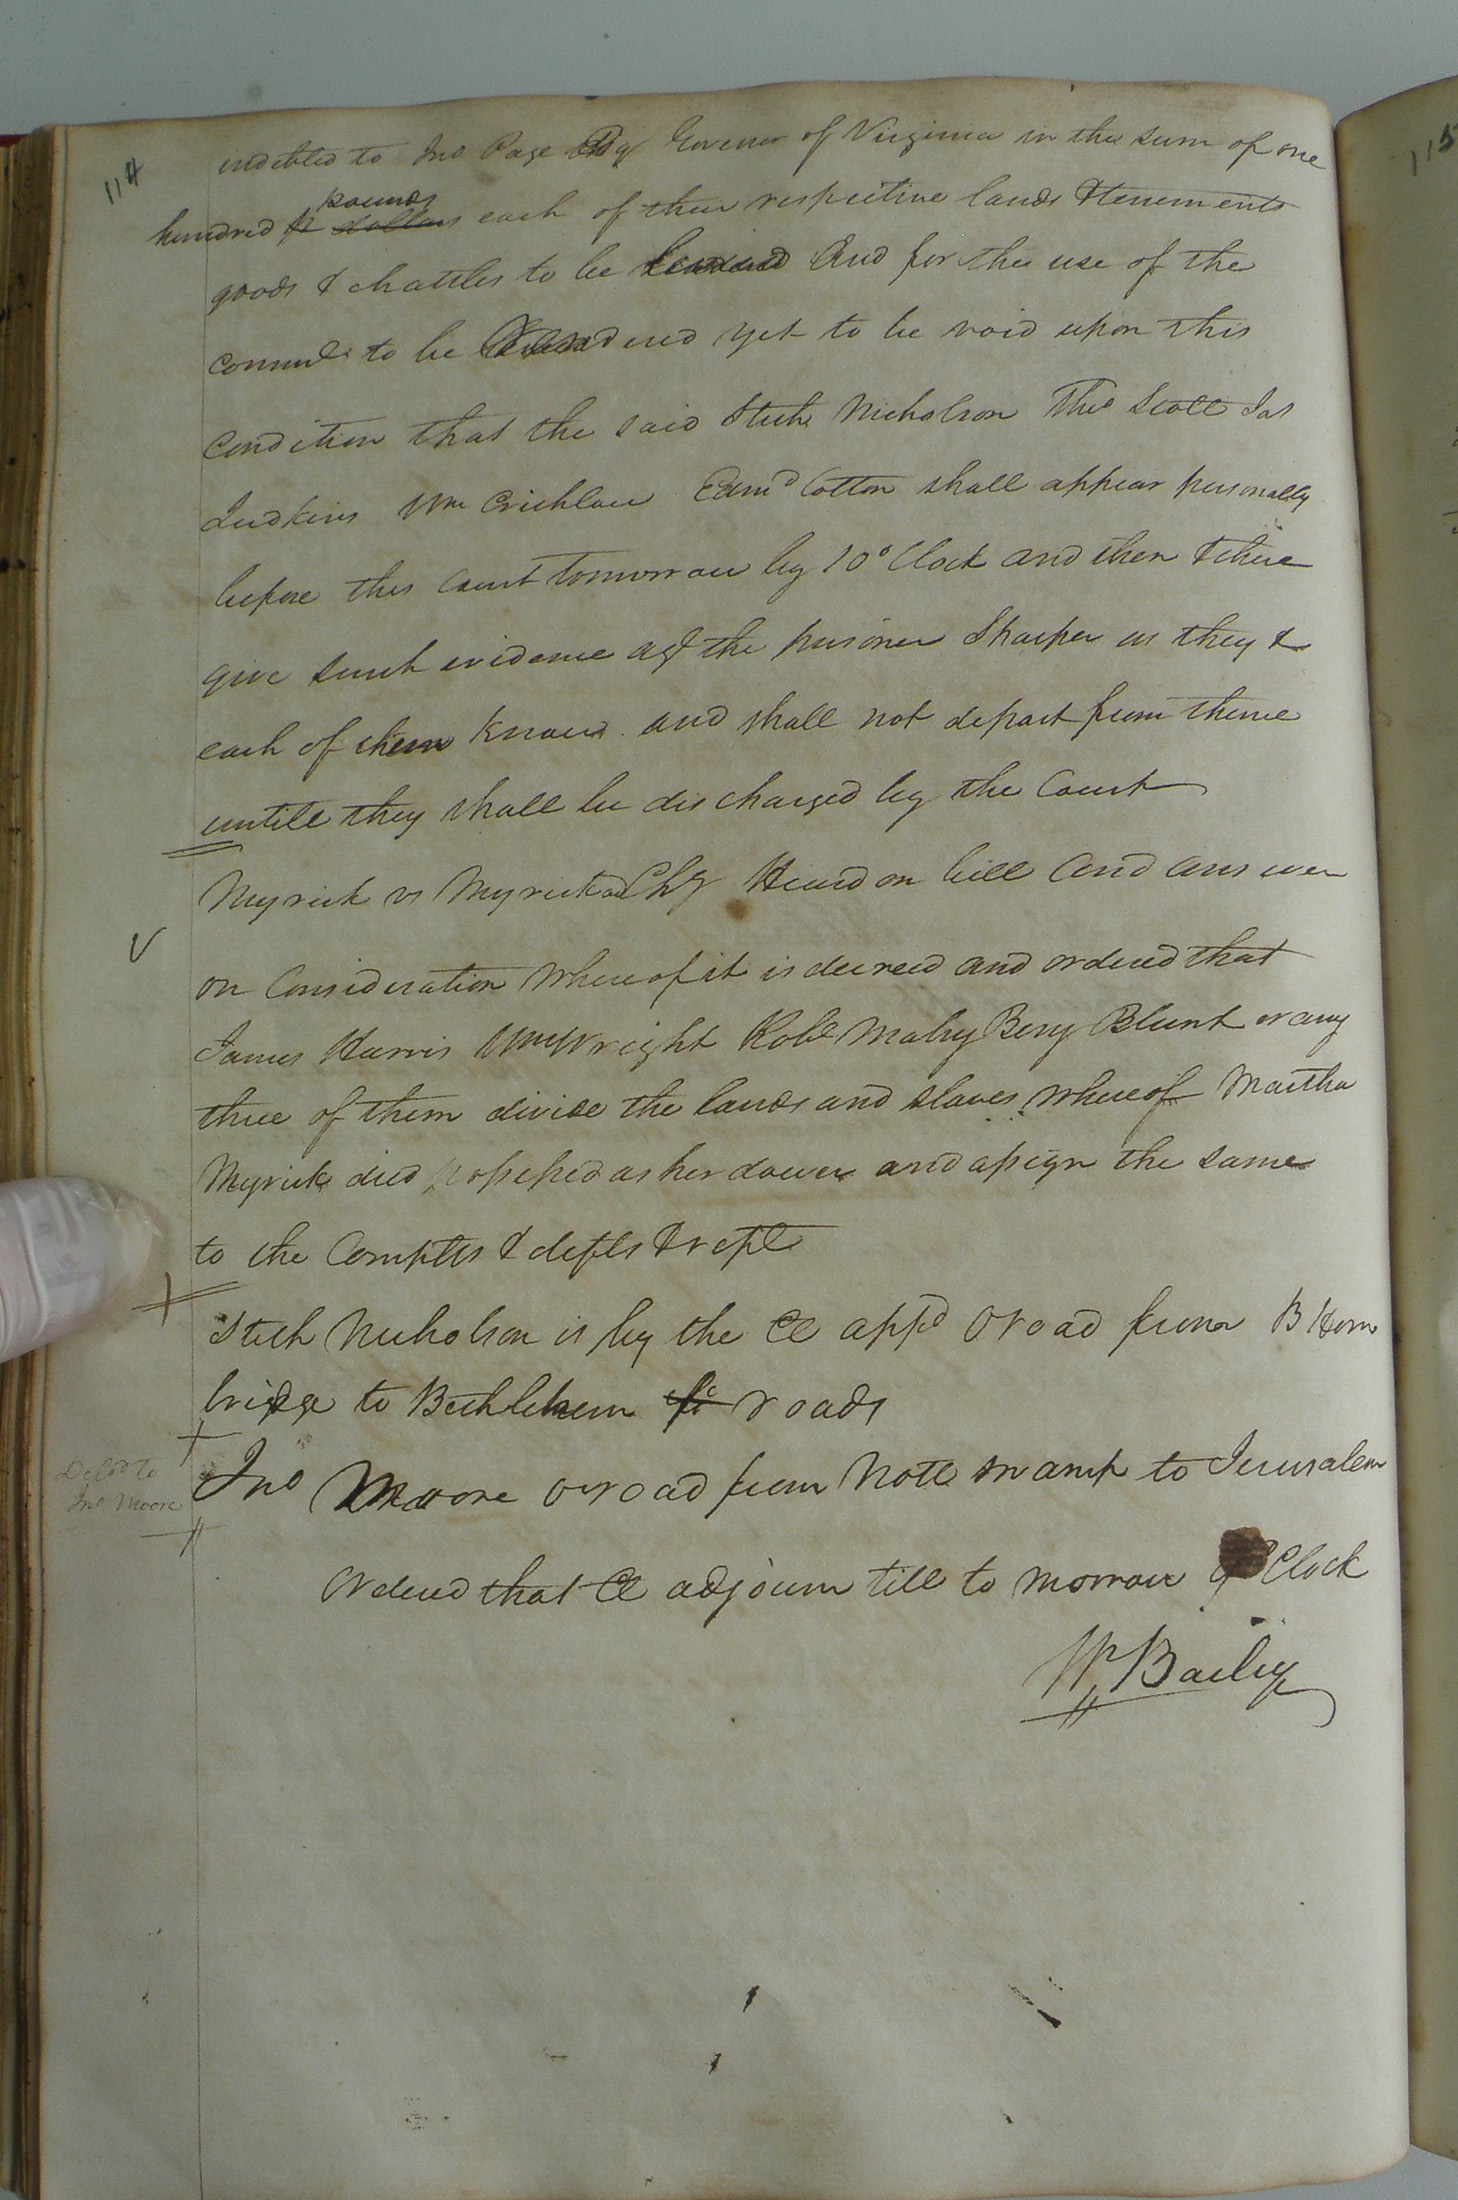 114
indebted to Jno Page Esqr Governor of Virginia in the sum of one
pounds
hundred dollars each of their respective lands & tenements
goods & chattles to be And for the use of the
commlth to be rendered yet to be void upon this
condition that the said Stith Nicholson Thos Scott Jas
Judkins Wm Crichlow Edmd Cotton shall appear personally
before this Court tomorrow by 10 oClock and then & there
give such evidence agt the prisoner Sharper as they &
each of them know and shall not depart from thence
untill they shall be discharged by the Court
Myrick vs Myrick Chy Heard on bill and answer
on Consideration whereof it is decreed and ordered that
James Harris Wm Wright Robt Mabry Benj Blunt or any
three of them divide the lands and slaves whereof Martha
Myrick died possessed as her dower and assign the same
to the Complts & defts & rept
Stith Nicholson is by the Ct appd O road from B Horn
bridge to Bethlehem + roads
Deld to
Jno Moore
Jno Moore o road from Nott swamp to Jerusalem
Ordered that Ct adjourn till to morrow Clock
W Bailey
115